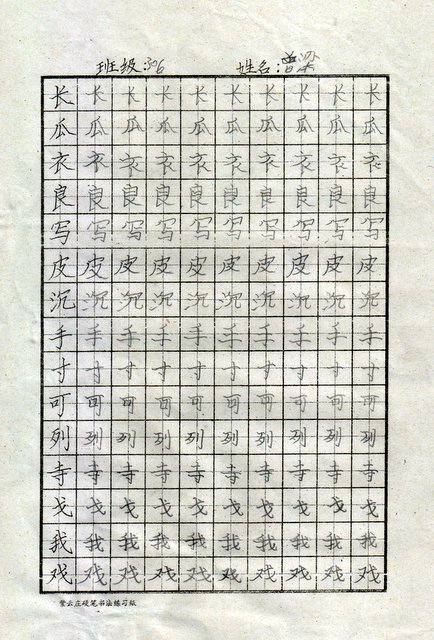 班级:306 姓名:
长长长长长长长长长长
瓜瓜瓜瓜瓜瓜瓜瓜瓜瓜
衣衣衣衣衣衣衣衣衣衣
良良良良良良良良良良
写写写写写写写写写写
皮皮皮皮皮皮皮皮皮皮
沉沉沉沉沉沉沉沉沉沉
手手手手手手手手手手
寸寸寸寸寸寸寸寸寸寸
可可可可可可可可可可
列列列列列列列列列列
寺寺寺寺寺寺寺寺寺寺
戈戈戈戈戈戈戈戈戈戈
我我我我我我我我我我
戏戏戏戏戏戏戏戏戏戏
紫云庄硬笔书法练习纸